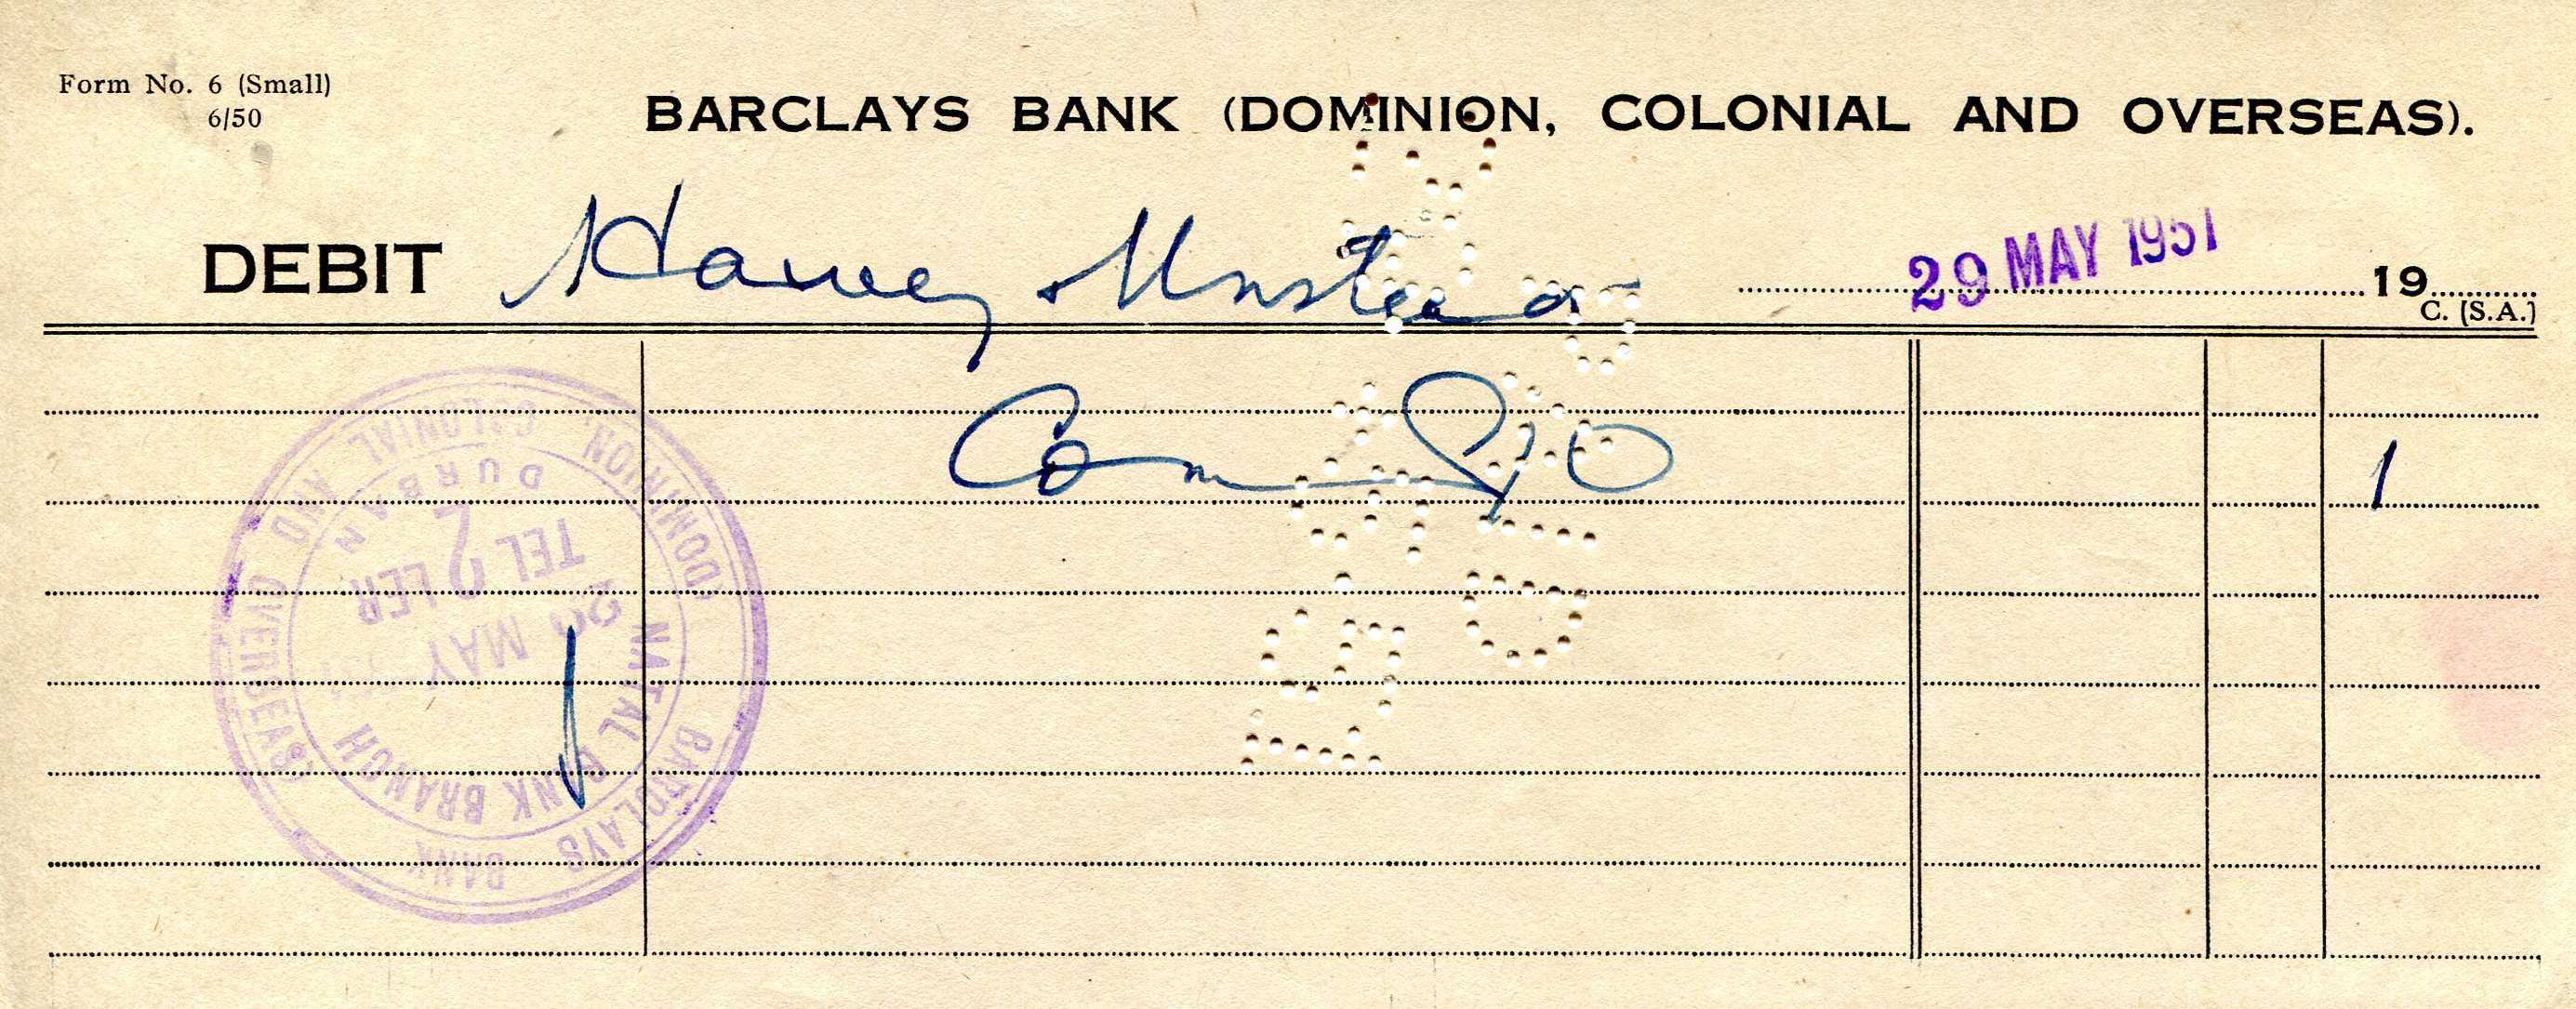 Form No. 6 (Small)
6/50
BARCLAYS BANK (DOMINION, COLONIAL AND OVERSEAS).
DEBIT Harvey 29 MAY 1951 19
C. (S.A.)
Com 1
BARCLAYS BANK (DOMINION, COLONIAL AND OVERSEAS)
NATAL BANK BRANCH
DURBAN
2
TELLER
29 MAY 1951